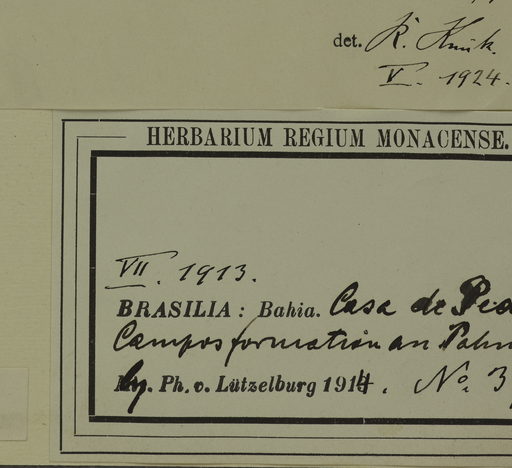 det. K.
V. 1924.
HERBARIUM REGIUM MONACENSE.
VII. 1913.
BRASILIA: Bahia. Casa de
Camposformation an
Ph. v. Lützelburg 1914. No. 3